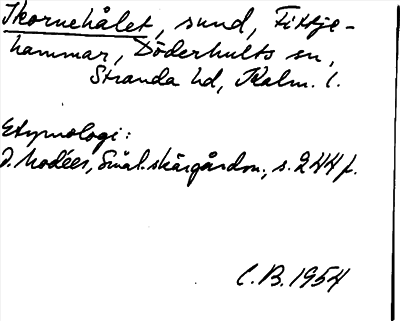 Ikornehålet, sund, Fittje-
hammar, Döderhults sn,
Stranda hd, Kalm. l.
Etymologi:
I. Modéer, Smål. skärgårdsn., s. 244 f.
C.B. 1954